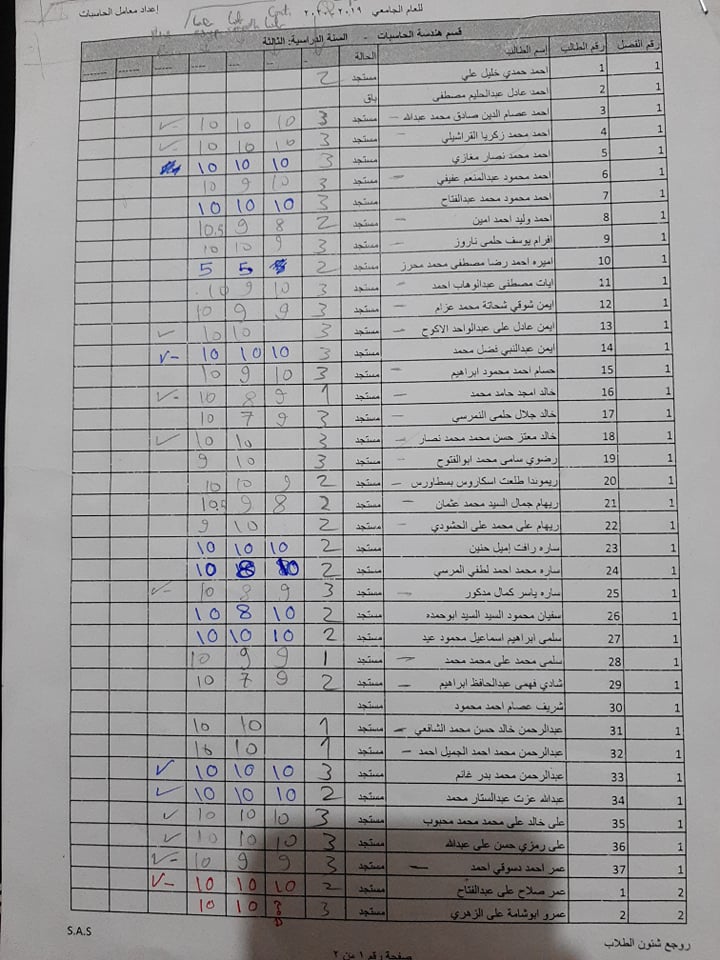 للعام الجامعي ٢٠١٩ / ٢٠٢٠ إعداد معامل الحاسبات
قسم هندسة الحاسبات - السنة الدراسية: الثالثة
رقم الفصل رقم الطالب اسم الطالب الحالة
1 1 احمد حمدي خليل علي مستجد 2
1 2 احمد عادل عبدالحليم مصطفى باق
1 3 احمد عصام الدين صادق محمد عبدالله مستجد 3 10 10 10 ✓-
1 4 احمد محمد زكريا القراشيلي مستجد 3 10 10 10 ✓-
1 5 احمد محمد نصار مغازي مستجد 3 10 10 10
1 6 احمد محمود عبدالمنعم عفيفي مستجد 3 10 9 10
1 7 احمد محمود محمد عبدالفتاح مستجد 3 10 10 10
1 8 احمد وليد احمد امين مستجد 2 8 9 10.5
1 9 افرام يوسف حلمى ناروز مستجد 3 9 10 10
1 10 اميره احمد رضا مصطفى محمد محرز مستجد 2 5 5
1 11 ايات مصطفى عبدالوهاب احمد مستجد 3 10 9 10
1 12 ايمن شوقي شحاتة محمد عزام مستجد 3 9 9 10
1 13 ايمن عادل على عبدالواحد الاكوح مستجد 3 10 10 ✓
1 14 ايمن عبدالنبي فضل محمد مستجد 3 10 10 10 ✓-
1 15 حسام احمد محمود ابراهيم مستجد 3 10 9 10
1 16 خالد امجد حامد محمد مستجد 1 9 8 10 ✓-
1 17 خالد جلال حلمى النمرسي مستجد 3 9 7 10
1 18 خالد معتز حسن محمد محمد نصار مستجد 3 10 10 ✓
1 19 رضوي سامى محمد ابوالفتوح مستجد 3 10 9
1 20 ريموندا طلعت اسكاروس بسطاورس مستجد 2 9 10 10
1 21 ريهام جمال السيد محمد عثمان مستجد 2 8 9 10.5
1 22 ريهام على محمد على الحشودي مستجد 2 10 9
1 23 ساره رافت إميل حنين مستجد 2 10 10 10
1 24 ساره محمد احمد لطفي المرسي مستجد 2 10 8 10
1 25 ساره ياسر كمال مدكور مستجد 3 9 8 10 ✓-
1 26 سفيان محمود السيد السيد ابوحمده مستجد 2 10 8 10
1 27 سلمى ابراهيم اسماعيل محمود عيد مستجد 2 10 10 10
1 28 سلمى محمد على محمد محمد مستجد 1 9 9 10
1 29 شادي فهمى عبدالحافظ ابراهيم مستجد 2 9 7 10
1 30 شريف عصام احمد محمود مستجد
1 31 عبدالرحمن خالد حسن محمد الشافعي مستجد 1 10 10
1 32 عبدالرحمن محمد احمد الجميل احمد مستجد 1 10 10
1 33 عبدالرحمن محمد بدر غانم مستجد 3 10 10 10 ✓
1 34 عبدالله عزت عبدالستار محمد مستجد 2 10 10 10 ✓
1 35 على خالد على محمد محمد محبوب مستجد 3 10 10 10 ✓
1 36 على رمزي حسن على عبدالله مستجد 3 10 10 10 ✓
1 37 عمر احمد دسوقي احمد مستجد 3 9 9 10 ✓-
2 1 عمر صلاح على عبدالفتاح مستجد 2 10 10 10 ✓-
2 2 عمرو ابوشامة على الزهري مستجد 3 10 10
روجع شئون الطلاب S.A.S
صفحة رقم ١ من ٢